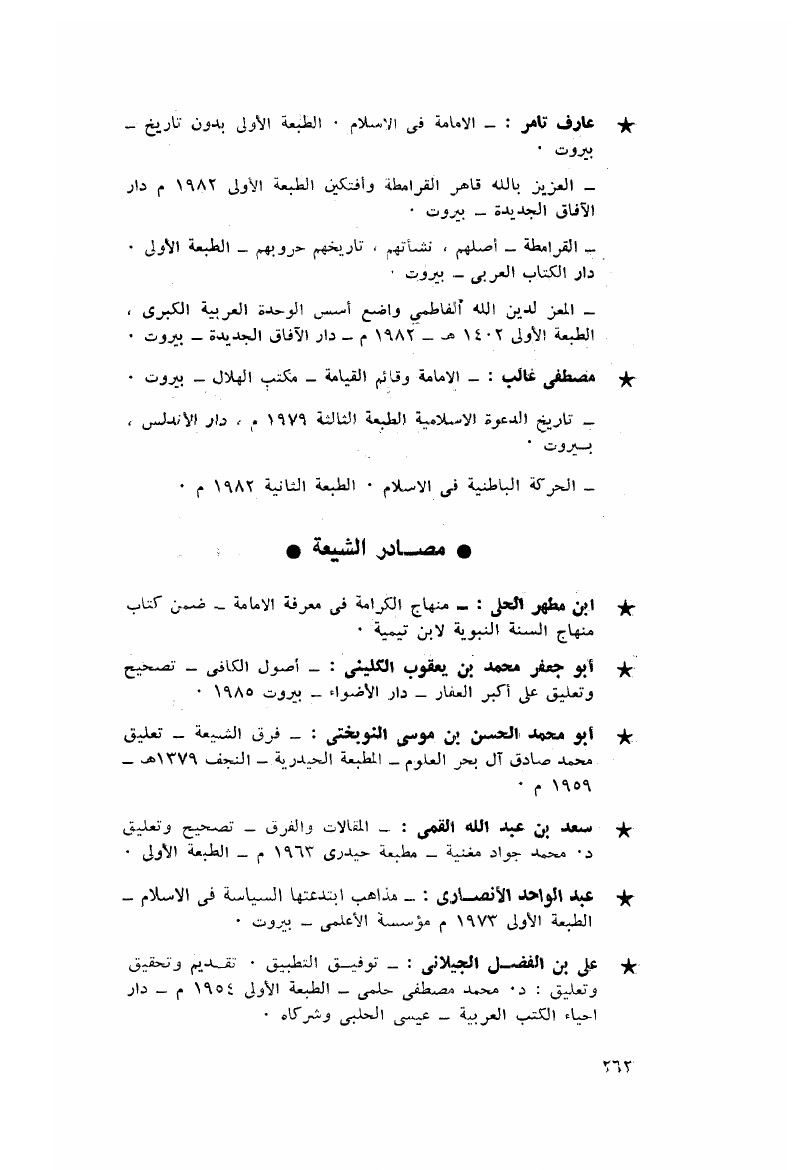 ★ عارف تامر : – الامامة فى الاسلام ٠ الطبعة الأولى بدون تاريخ –
بيروت ٠
– العزيز بالله قاهر القرامطة وأفتكين الطبعة الأولى ١٩٨٢ م دار
الآفاق الجديدة – بيروت ٠
– القرامطة – أصلهم ، نشأتهم ، تاريخهم حروبهم – الطبعة الأولى ٠
دار الكتاب العربى – بيروت ٠
– المعز لدين الله الفاطمي واضع أسس الوحدة العربية الكبرى ،
الطبعة الأولى ١٤٠٢ هـ – ١٩٨٢ م – دار الآفاق الجديدة – بيروت ٠
★ مصطفى غالب : – الامامة وقائم القيامة – مكتب الهلال – بيروت ٠
– تاريخ الدعوة الاسلامية الطبعة الثالثة ١٩٧٩ م ، دار الأندلس ،
بـيروت ٠
– الحركة الباطنية فى الاسلام ٠ الطبعة الثانية ١٩٨٢ م ٠
● مصـادر الشيعة ●
★ ابن مطهر الحلى : – منهاج الكرامة فى معرفة الامامة – ضمن كتاب
منهاج السنة النبوية لابن تيمية ٠
★ أبو جعفر محمد بن يعقوب الكلينى : – أصول الكافى – تصحيح
وتعليق على أكبر العفار – دار الأضواء – بيروت ١٩٨٥ ٠
★ أبو محمد الحسن بن موسى النوبختى : – فرق الشيعة – تعليق
محمد صادق آل بحر العلوم – المطبعة الحيدرية – النجف ١٣٧٩هـ –
١٩٥٩ م ٠
★ سعد بن عبد الله القمى : – المقالات والفرق – تصحيح وتعليق
د٠ محمد جواد مغنية – مطبعة حيدرى ١٩٦٣ م – الطبعة الأولى ٠
★ عبد الواحد الأنصـارى : – مذاهب ابتدعتها السياسة فى الاسلام –
الطبعة الأولى ١٩٧٣ م مؤسسة الأعلمى – بيروت ٠
★ على بن الفضـل الجيلانى : – توفيـق التطبيق ٠ تقـديم وتحقيق
وتعليق : د٠ محمد مصطفى حلمى – الطبعة الأولى ١٩٥٤ م – دار
احياء الكتب العربية – عيسى الحلبى وشركاه ٠
٢٦٢